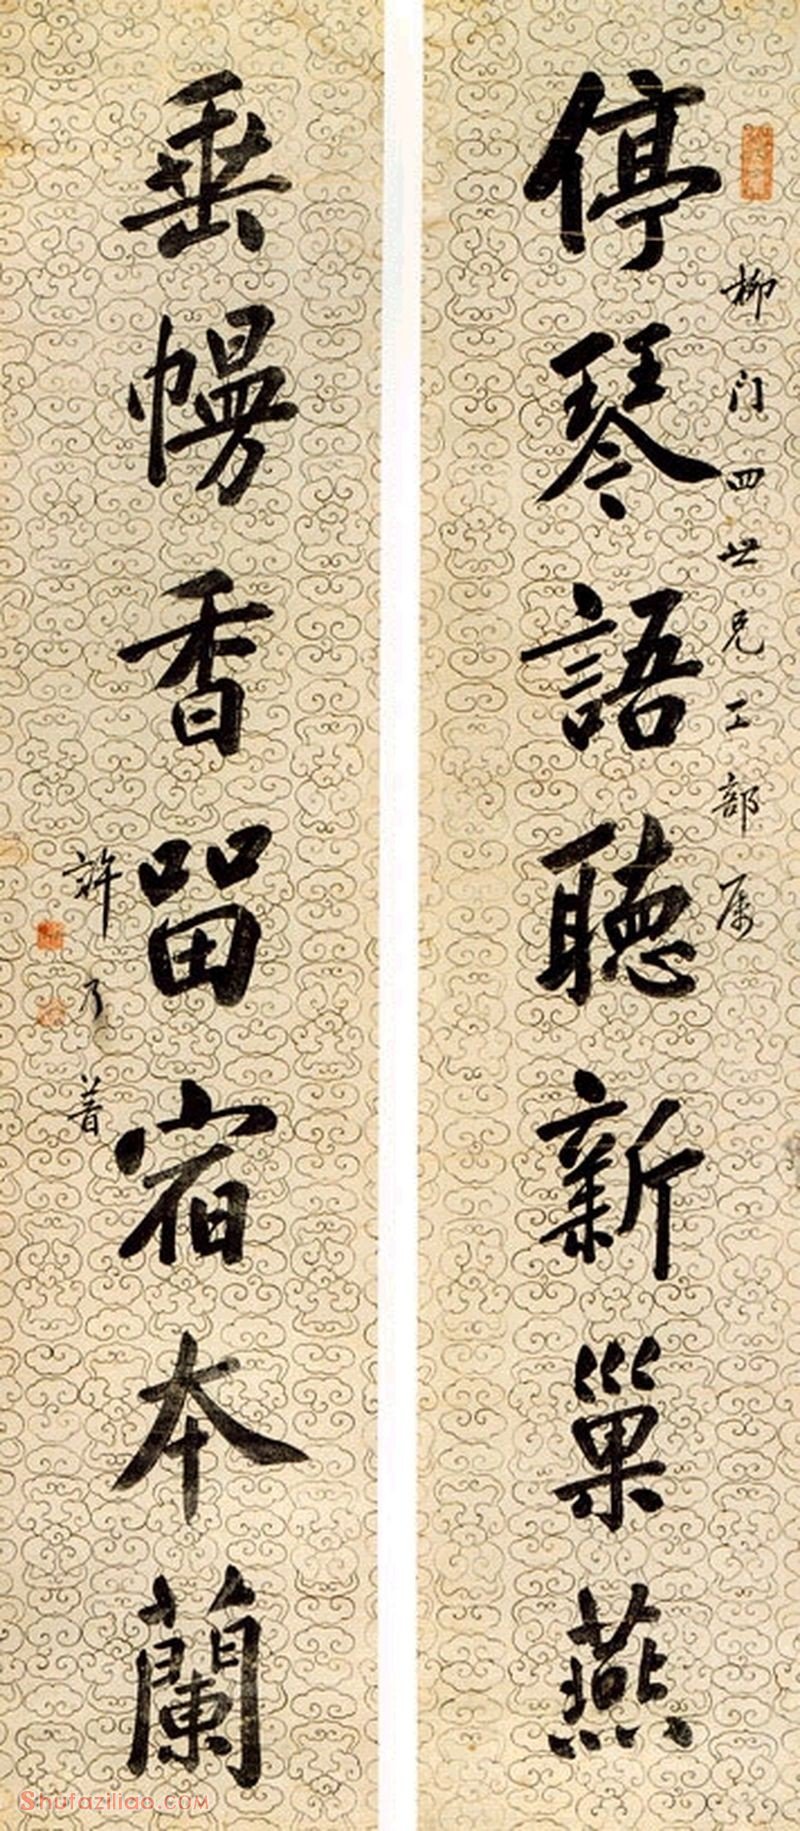 停琴語聽新巢燕
柳门四世兄工部属
垂幔香留宿本蘭
許乃普
Shufaziliao.com